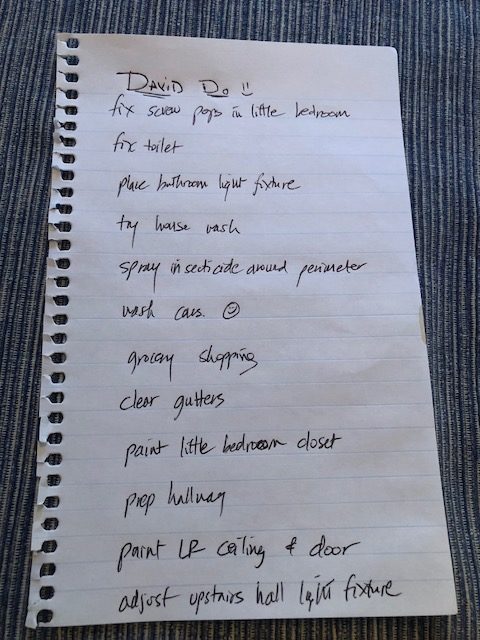 DAVID DO !!
fix screw pops in little bedroom
fix toilet
place bathroom light fixture
try house wash
spray insecticide around perimeter
wash cars. ☺
grocery shopping
clear gutters
paint little bedroom closet
prep hallway
paint LR ceiling & door
adjust upstairs hall light fixture